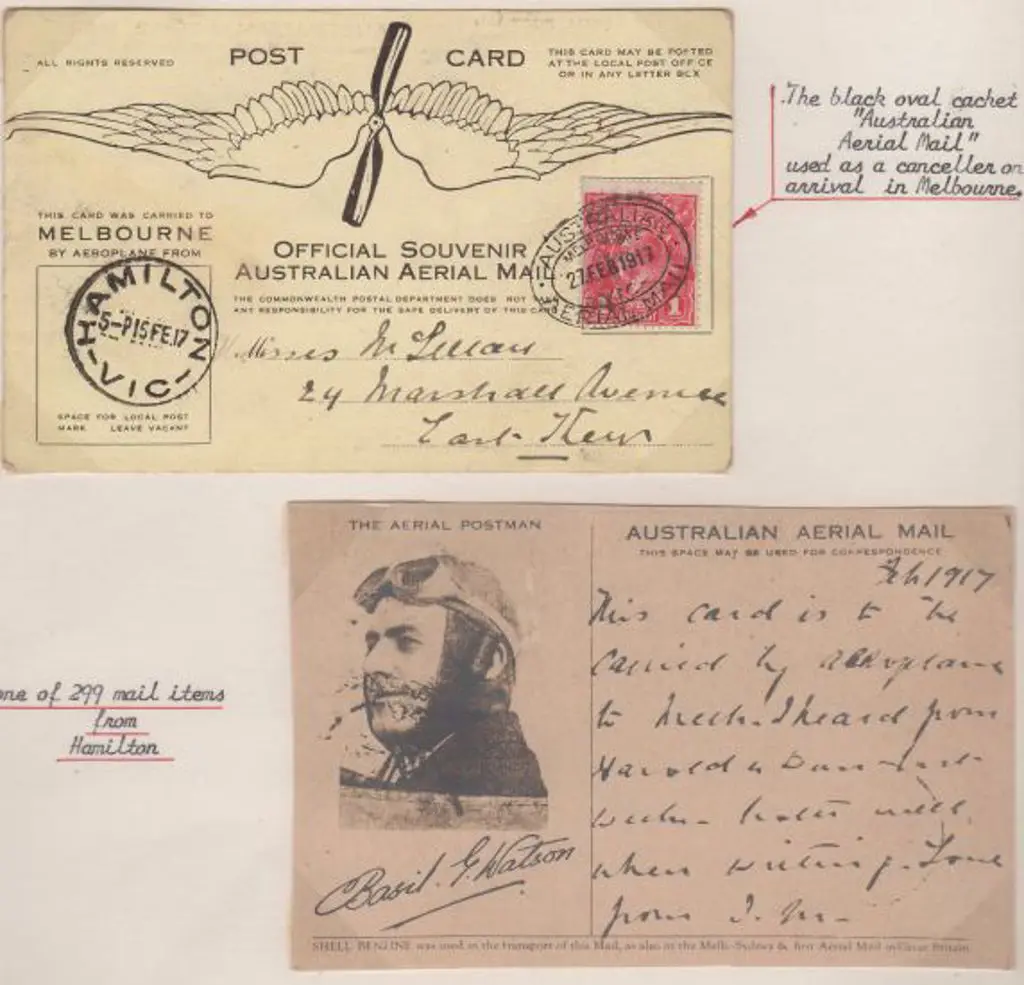 ALL RIGHTS RESERVED
POST CARD
THIS CARD MAY BE POSTED
AT THE LOCAL POST OFFICE
OR IN ANY LETTER BOX
THIS CARD WAS CARRIED TO
MELBOURNE
BY AEROPLANE FROM
HAMILTON
5-P15FE17
VIC
SPACE FOR LOCAL POST
MARK LEAVE VACANT
OFFICIAL SOUVENIR
AUSTRALIAN AERIAL MAIL
THE COMMONWEALTH POSTAL DEPARTMENT DOES NOT
ANY RESPONSIBILITY FOR THE SAFE DELIVERY OF THIS CARD
AUSTRALIAN
MELBOURNE
27FEB1917
AERIAL MAIL
1
Misses
24 Marshall Avenue
East Kew
The black oval cachet
"Australian
Aerial Mail"
used as a canceller on
arrival in Melbourne.
one of 299 mail items
from
Hamilton
THE AERIAL POSTMAN
Basil G. Watson
AUSTRALIAN AERIAL MAIL
THIS SPACE MAY BE USED FOR CORRESPONDENCE
Feb 1917
This card is to be
carried by aeroplane
to Melb. I heard from
Harold
well
when writing. Love
from J. M-
SHELL BENZINE was used in the transport of this Mail, as also in the Melb.-Sydney & first Aerial Mail in Great Britain